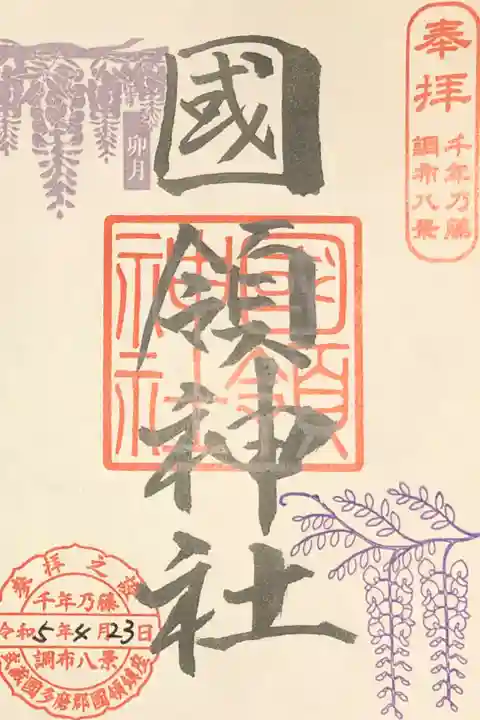 奉拝
千年乃藤
調布八景
卯月
國領神社
國領
神社
参拝之証
千年乃藤
令和5年4月23日
調布八景
武蔵國多磨郡國領鎮座